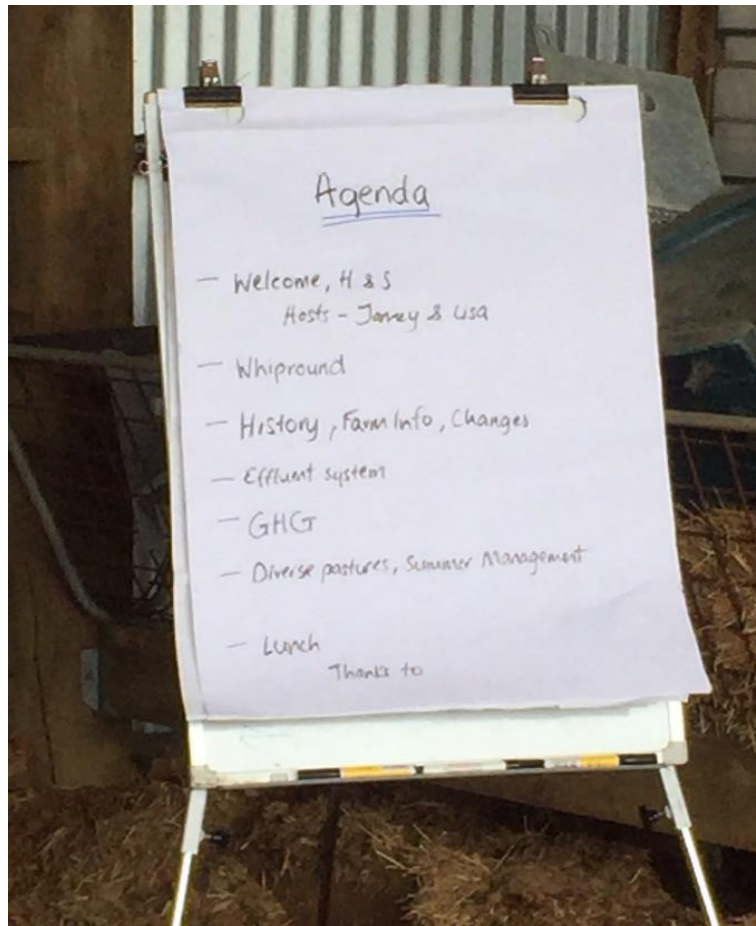 Agenda
– Welcome, H & S
Hosts – & Lisa
– Whipround
– History, Farm Info, Changes
– Effluent system
– GHG
– Diverse pastures, Summer Management
– Lunch
Thanks to